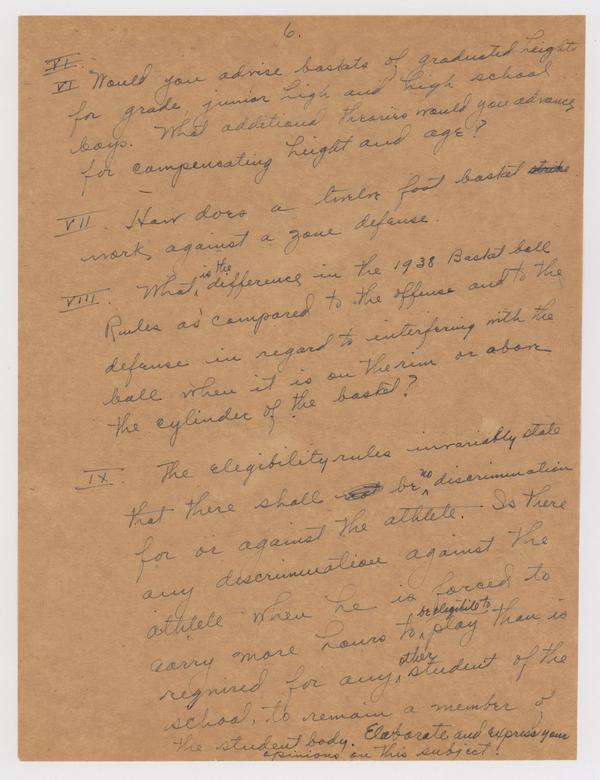 6.
VI.
VI Would you advise baskets of graduated heights
for grade, junior high and high school
boys. What additional theories would you advance
for compensating height and age?
VII. How does a twelve foot basket strike
work against a zone defense.
is the
VIII. What difference in the 1938 Basket ball
Rules as compared to the offense and to the
defense in regard to interfering with the
ball when it is on the rim or above
the cylinder of the basket?
IX. The elegibility rules invariably state
no
that there shall be discrimination
for or against the athlete. Is there
any discrimination against the
athlete when he is forced to
be eligible to
carry more hours to play than is
other
required for any student of the
school, to remain a member of
the student body. Elaborate and express your
opinions on this subject.